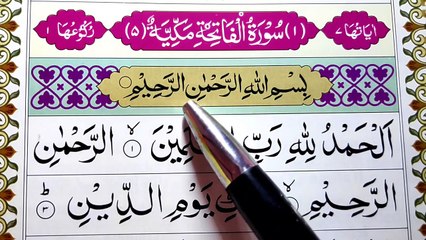 اٰیَاتُهَا ٧ (١) سُوْرَةُ الْفَاتِحَةِ مَكِّيَّةٌ (٥) رُكُوْعُهَا ١
بِسْمِ اللهِ الرَّحْمٰنِ الرَّحِيْمِ
اَلْحَمْدُ لِلّٰهِ رَبِّ ١ۙ الرَّحْمٰنِ
الرَّحِيْمِ يَوْمِ الدِّيْنِ ٣ؕ